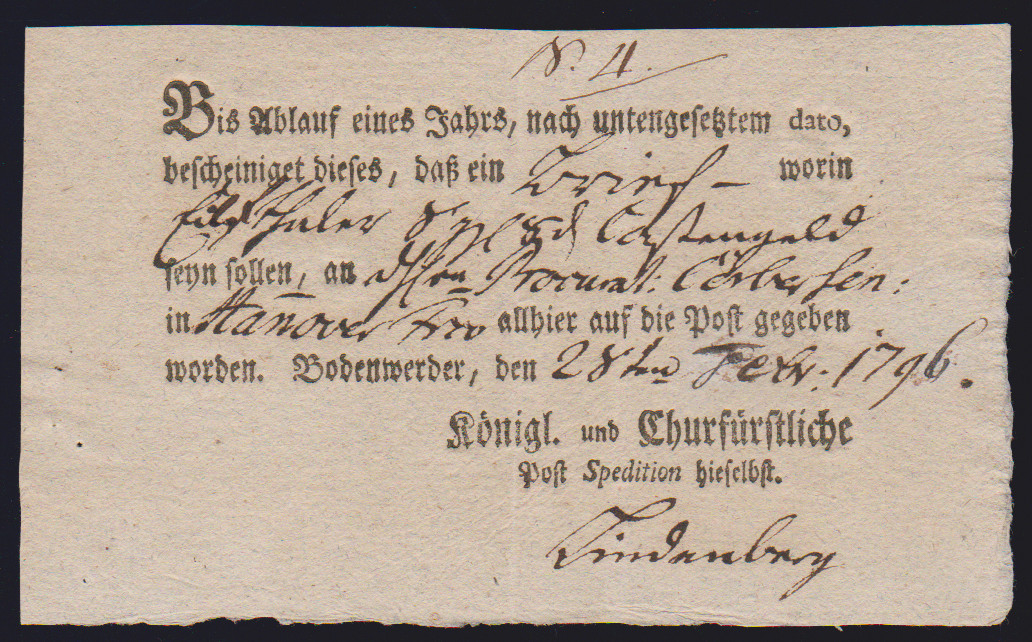 N. 4.
Bis Ablauf eines Jahrs, nach untengesetztem dato,
bescheiniget dieses, daß ein Brief – worin
Eilf Thaler Cassengeld
seyn sollen, an Procurat:
in Hanover allhier auf die Post gegeben
worden. Bodenwerder, den 28ten Febr: 1796.
Königl. und Churfürstliche
Post Spedition hieselbst.
Lindenberg